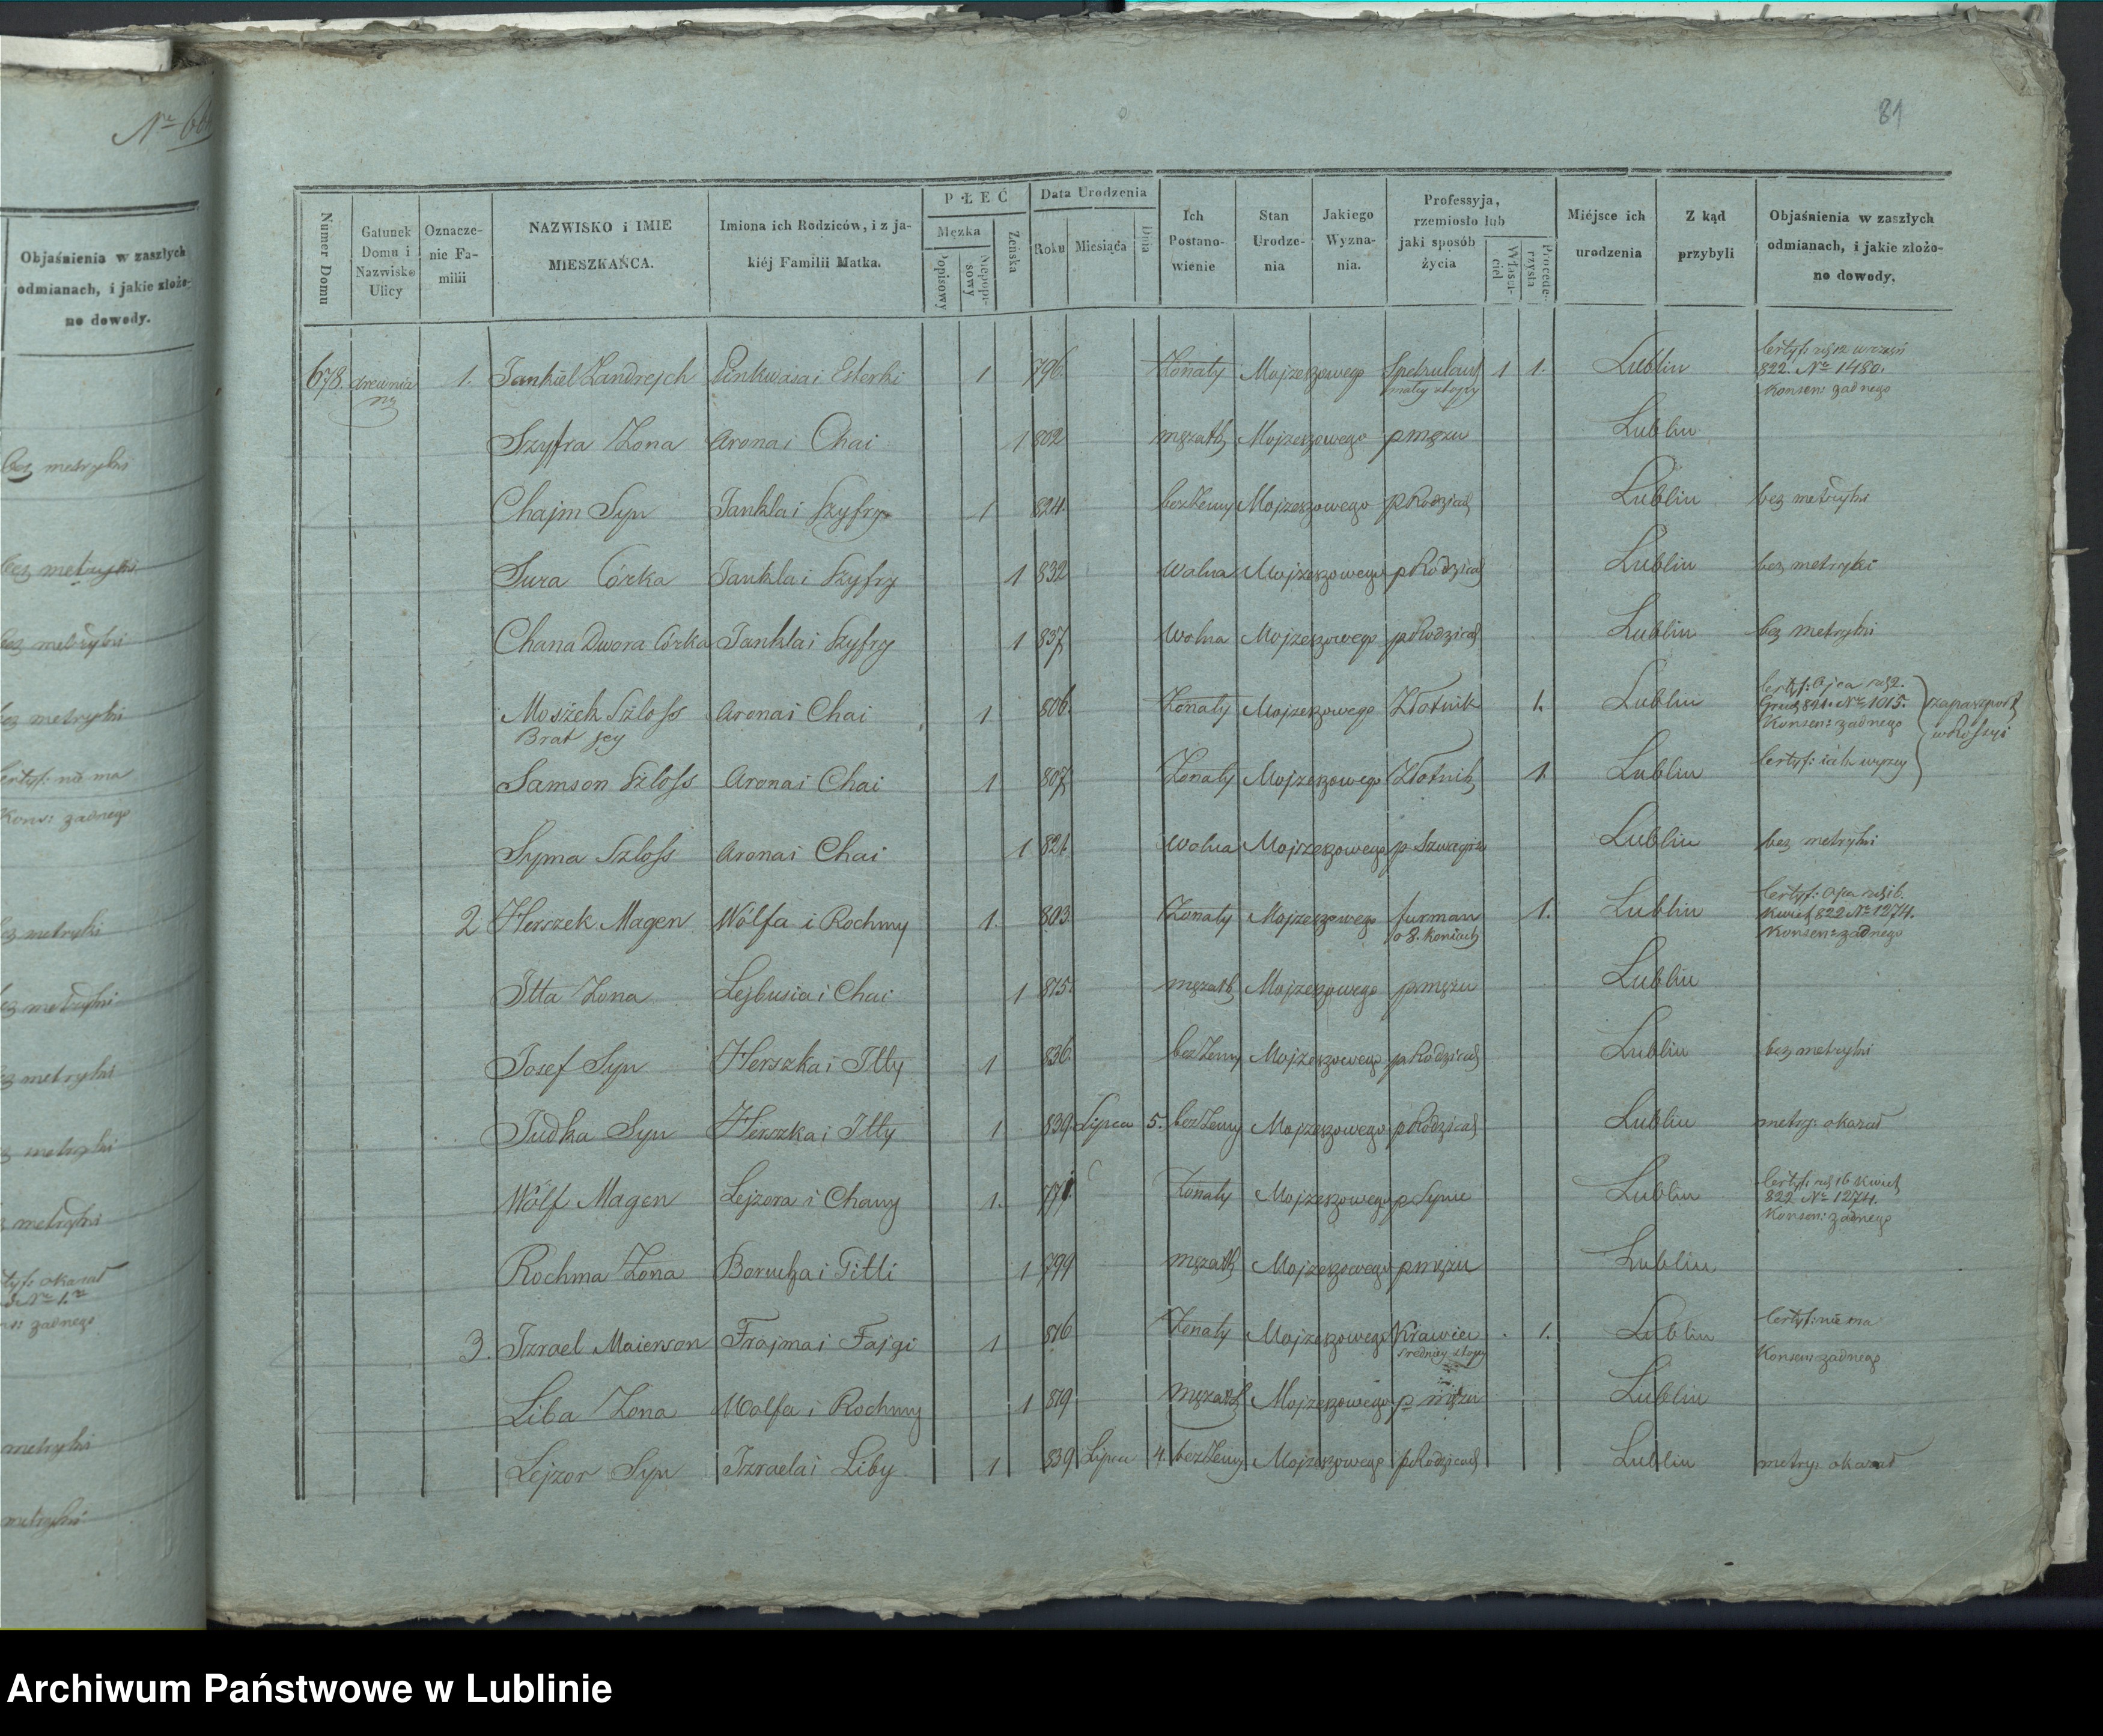 Nro 66
81
Objaśnienia w zaszłych
odmianach, i jakie złożo-
no dowody.
bez metryki
bez metryki
bez metryki
bez metryki
Certyf: nie ma
Kons: żadnego
bez metryki
bez metryki
bez metryki
metryki
metryki
okazał
żadnego
metryki
metryki
Numer Domu
Gatunek Domu i Nazwisko Ulicy
Oznacze- nie Fa- milii
NAZWISKO i IMIE MIESZKAŃCA.
Imiona ich Rodziców, i z ja- kiéj Familii Matka.
PŁEĆ
Męzka
Popisowy
Niepopi- sowy
Żeńska
Data Urodzenia
Roku
Miesiąca
Dnia
Ich Postano- wienie
Stan Urodze- nia
Jakiego Wyzna- nia.
Professyja, rzemiosło lub jaki sposób życia
Właści- ciel
Procede- rzysta
Miéjsce ich urodzenia
Z kąd przybyli
Objaśnienia w zaszłych odmianach, i jakie złożo- no dowody.
678. drewnia ny 1. Jankiel Zandrejch Pinkwasa i Esterki 1 796. Żonaty Mojzeszowego Spekulant małey stopy 1 1. Lublin Certyf: 12 wrześn 822. No 1480. Konsen: żadnego
Szyfra Żona Arona i Chai 1 802 mężatk Mojzeszowego p mężu Lublin
Chajm Syn Jankla i Szyfry 1 824. bezżenny Mojzeszowego p Rodzicach Lublin bez metryki
Sura Córka Jankla i Szyfry 1 832 Wolna Mojzeszowego p Rodzicach Lublin bez metryki
Chana Dwora Córka Jankla i Szyfry 1 837 Wolna Mojzeszowego p Rodzicach Lublin bez metryki
Moszek Szloss Brat jey Arona i Chai 1 806. Żonaty Mojzeszowego Złotnik 1. Lublin Certyf: Ojca Grud 821. No 1015. Konsen: żadnego
za paszport w Rossyi
Samson Szloss Arona i Chai 1 807 Żonaty Mojzeszowego Złotnik 1. Lublin Certyf: iak wyzey
Syma Szloss Arona i Chai 1 821. Wolna Mojzeszowego p Szwagrze Lublin bez metryki
2 Herszek Magen Wólfa i Rochmy 1. 803. Żonaty Mojzeszowego furman o 3. koniach 1. Lublin Certyf: Ojca 16. Kwiet 822 No 1274. Konsen: żadnego
Itta Żona Lejbusia i Chai 1 815. mężatk Mojzeszowego p mężu Lublin
Josef Syn Herszka i Itty 1 836. bezżenny Mojzeszowego p Rodzicach Lublin bez metryki
Judka Syn Herszka i Itty 1 839. Lipca 5. bezżenny Mojzeszowego p Rodzicach Lublin metry: okazał
Wólf Magen Lejzora i Chany 1. 771. Żonaty Mojzeszowego p Synie Lublin Certyf: 16 Kwiet 822 No 1274. Konsen: żadnego
Rochma Żona Borucha i Gitli 1 799 mężatk Mojzeszowego p mężu Lublin
3. Izrael Maierson Frojma i Fajgi 1 816 Żonaty Mojzeszowego Krawiec sredniey stopy 1. Lublin Certyf: nie ma Konsen: żadnego
Liba Żona Wolfa i Rochmy 1 819 mężatk Mojzeszowego p mężu Lublin
Lejzor Syn Izraela i Liby 1 839 Lipca 4. bezżenny Mojzeszowego p Rodzicach Lublin metry: okazał
Archiwum Państwowe w Lublinie